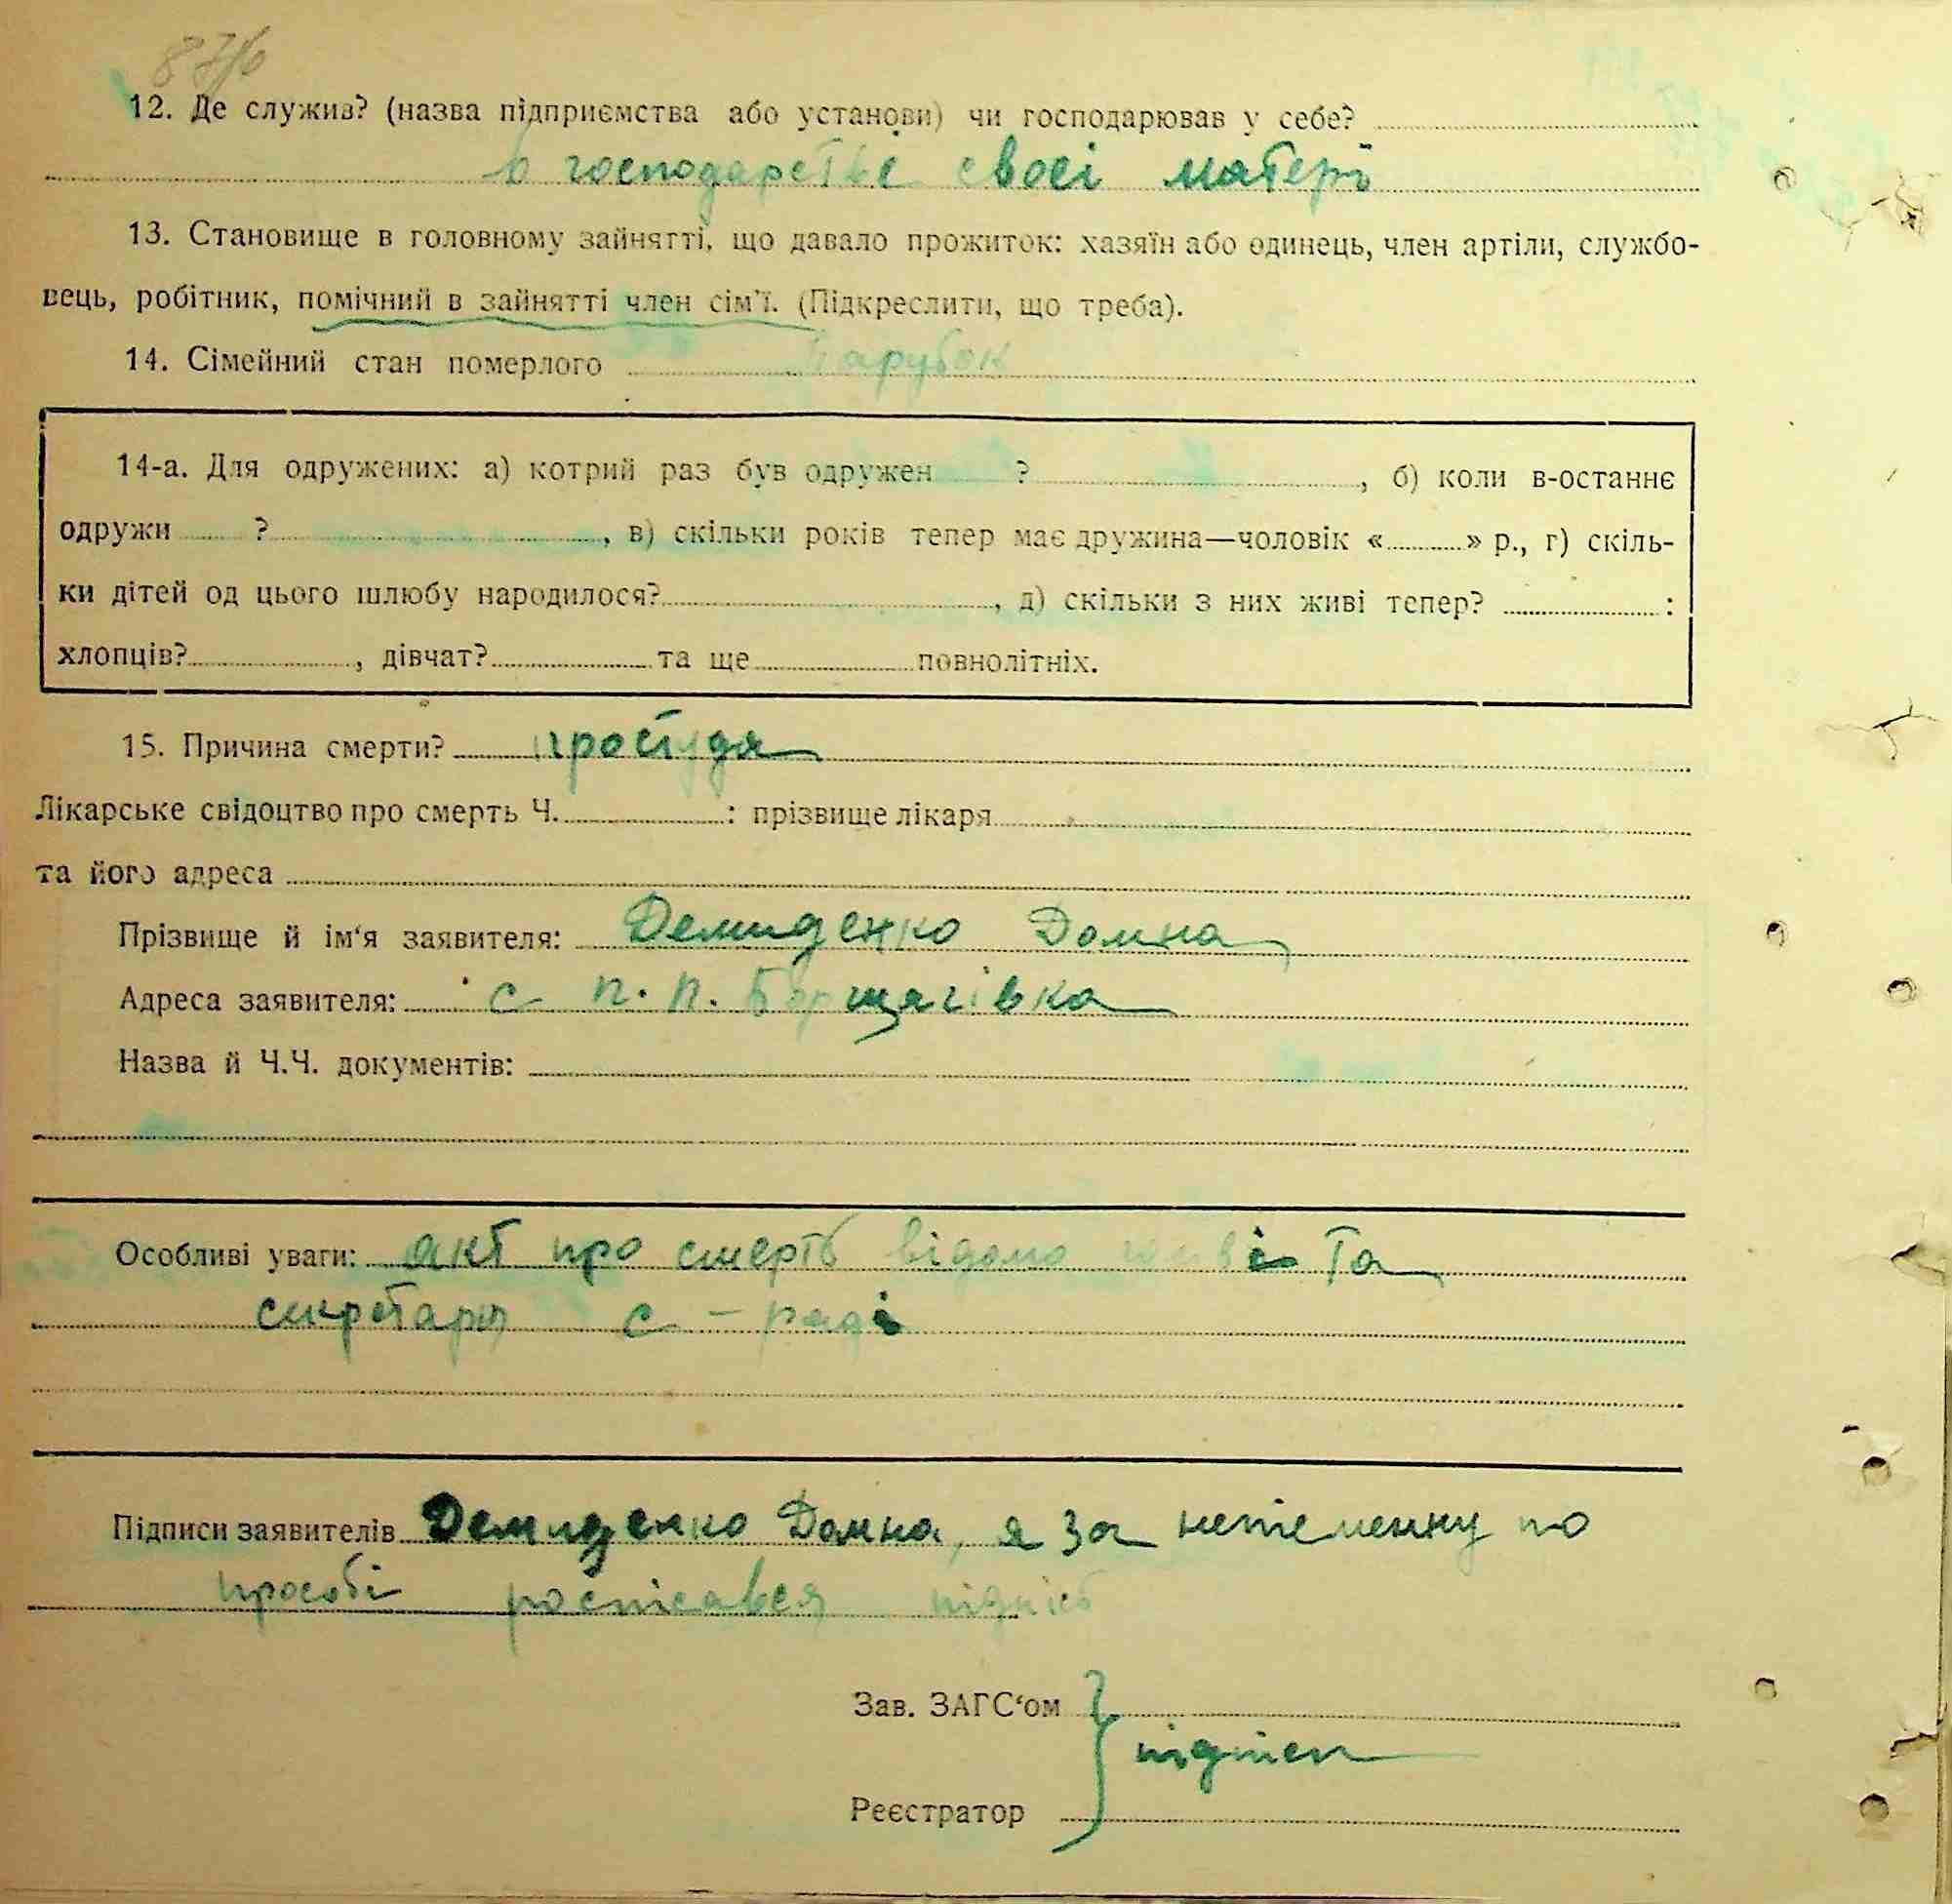 12. Де служив? (назва підприємства або установи) чи господарював у себе?
в господарстві своєі матері
13. Становище в головному зайнятті, що давало прожиток: хазяїн або одинець, член артіли, службо-
вець, робітник, помічний в зайнятті член сім'ї. (Підкреслити, що треба).
14. Сімейний стан померлого парубок
14-а. Для одружених: а) котрий раз був одружен ? , б) коли в-останнє
одружи ? , в) скільки років тепер має дружина—чоловік « » р., г) скіль-
ки дітей од цього шлюбу народилося? , д) скільки з них живі тепер? :
хлопців? , дівчат? та ще повнолітніх.
15. Причина смерти? простуда
Лікарське свідоцтво про смерть Ч. : прізвище лікаря
та його адреса
Прізвище й ім'я заявителя: Демиденко Домна
Адреса заявителя: с. П. П. Борщагівка
Назва й Ч.Ч. документів:
Особливі уваги: акт про смерть відомо та
секретарю с-раді
Підписи заявителів Демиденко Домна, я за неписменну по
прозбі росписався підпис
Зав. ЗАГС'ом
підписи
Реєстратор